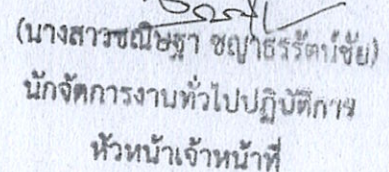 (นางสาวชณิษฐา ชญาธรรัตน์ชัย)
นักจัดการงานทั่วไปปฏิบัติการ
หัวหน้าเจ้าหน้าที่